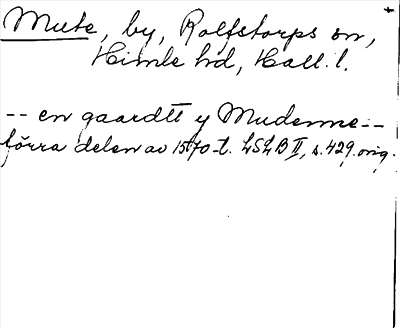 Mute, by, Rolfstorps sn,
Himle hd, Hall. l.
-- en gaardtt y Mudenne --
förra delen av 1570-t. LSLB II, s. 429. orig.